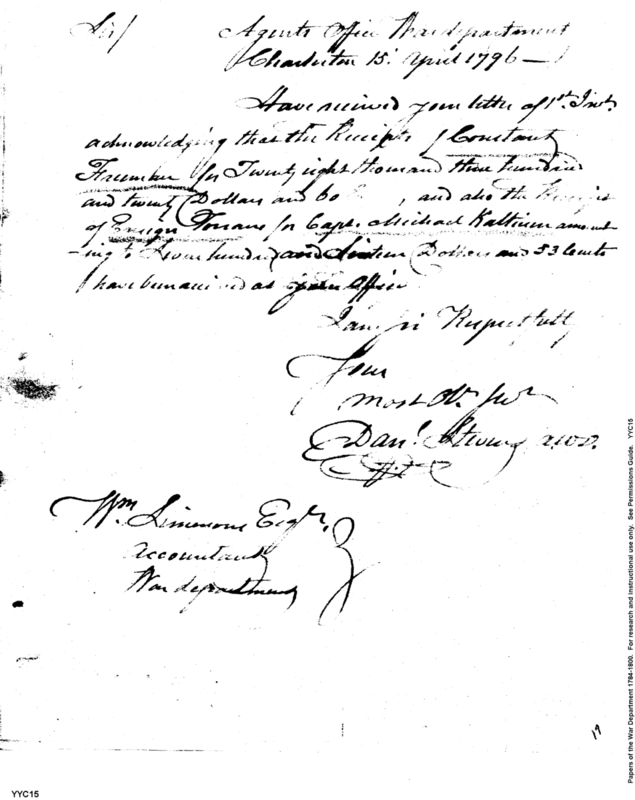 Sir/ Agents Office War department
Charleston 15: April 1796 —
Have received your letter of 1st. Inst.
acknowledging that the Receipts of Constant
Freeman for Twenty eight thousand three hundred
and twenty Dollars and 60 , and also the Receipts
of Ensign for Capt. Michael Kalteisen amount
-ing to hundred and Sixteen Dollars and 53 Cents
have been received at your Office
I am Sir Respectfully
Your
most Ob. Ser
Danl. Stevens A.W.D.
Wm Simmons Esqr.
Accountant
War department
19
YYC15
Papers of the War Department 1784-1800. For research and instructional use only. See Permissions Guide. YYC15